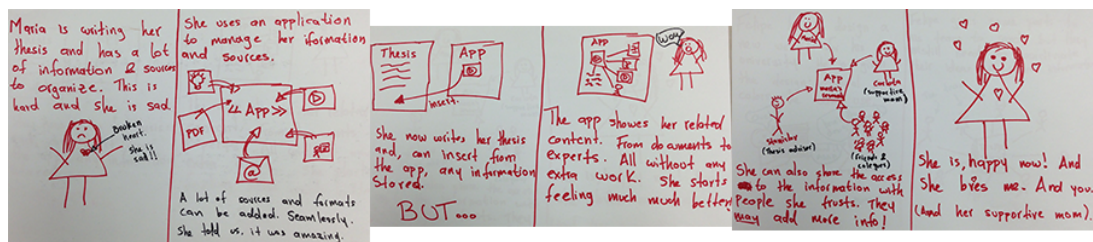 Maria is writing her
thesis and has a lot
of information & sources
to organize. This is
hard and she is sad.
Broken
heart.
She is
sad!!
She uses an application
to manage her iformation
and sources.
PDF
"App"
@
A lot of sources and formats
can be added. Seamlessly.
She told us, it was amazing.
Thesis
App
insert.
She now writes her thesis
and, can insert from
the app, any information
stored.
BUT...
APP
WOW
The app showes her related
content. From documents to
experts. All without any
extra work. She starts
feeling much much better!
App
Maria's
(supportive
mom)
(Thesis advisor)
(friends &
She can also share the access
to the information with
People she trusts. They
may add more info!
She is, happy now! And
She loves me. And you.
(And her supportive mom).